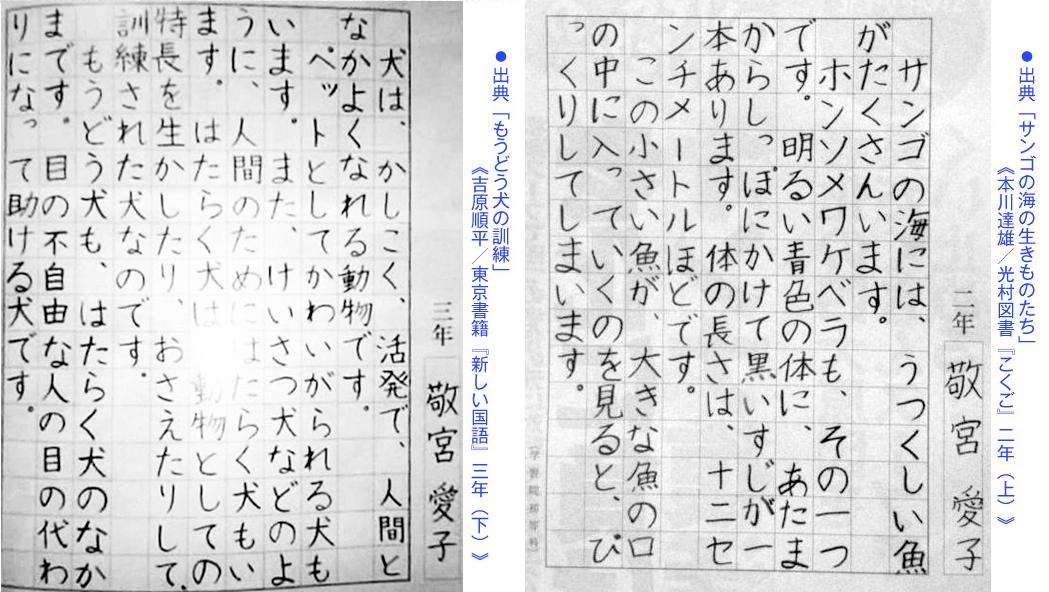 ●出典「サンゴの海の生きものたち」
《本川達雄/光村図書『こくご』二年(上)》
二年 敬宮 愛子
サンゴの海には、うつくしい魚
がたくさんいます。
ホンソメワケベラも、その一つ
です。明るい青色の体に、あたま
からしっぽにかけて黒いすじが一
本あります。体の長さは、十二セ
ンチメートルほどです。
この小さい魚が、大きな魚の口
の中に入っていくのを見ると、び
っくりしてしまいます。
(学習院初等科)
●出典「もうどう犬の訓練」
《吉原順平/東京書籍『新しい国語』三年(下)》
三年 敬宮 愛子
犬は、かしこく、活発で、人間と
なかよくなれる動物です。
ペットとしてかわいがられる犬も
います。また、けいさつ犬などのよ
うに、人間のためにはたらく犬もい
ます。はたらく犬は、動物としての
特長を生かしたり、おさえたりして、
訓練された犬なのです。
もうどう犬も、はたらく犬のなか
まです。目の不自由な人の目の代わ
りになって助ける犬です。